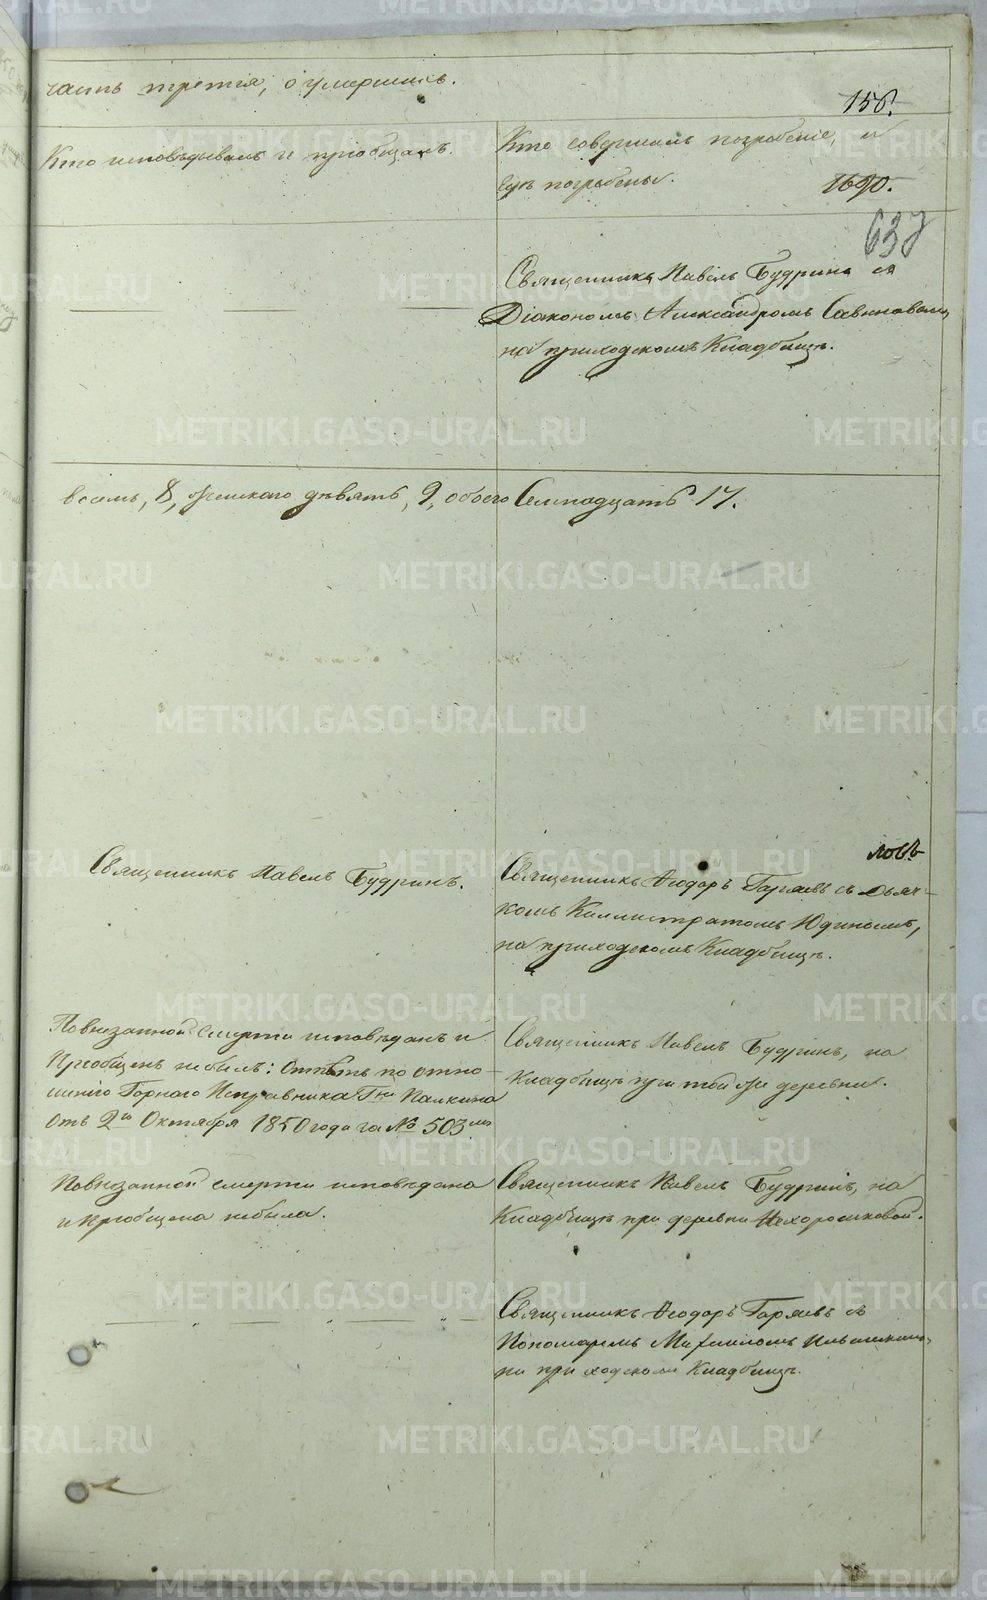 часть третія, о умершихъ.
156.
Кто исповѣдывалъ и пріобщалъ.
Кто совершалъ погребеніе, и
гдѣ погребены.
1690.
637
Священникъ Павелъ Будринъ съ
Діакономъ Александромъ
на приходскомъ Кладбищѣ.
восемь, 8, женскаго девять, 9, обоего Семнадцать 17.
Священникъ Павелъ Будринъ.
ловъ
Священникъ Ѳеодоръ Гаряевъ съ Дьяч-
комъ Каллистратомъ Юдинымъ,
на приходскомъ Кладбищѣ.
Повнезапной Смерти исповѣданъ и
Пріобщенъ небылъ: Отпѣтъ по отно-
шенію Горнаго Исправника Гна Палкина
Отъ 2го Октября 1850 года за № 503мъ
Священникъ Павелъ Будринъ, на
Кладбищѣ при той же деревни.
Повнезапной смерти исповѣдана
и пріобщена небыла.
Священникъ Павелъ Будринъ, на
Кладбищѣ при деревни Нехорошковой.
Священникъ Ѳеодоръ Гаряевъ съ
Пономаремъ Михаиломъ
на приходскомъ Кладбищѣ.
METRIKI.GASO-URAL.RU